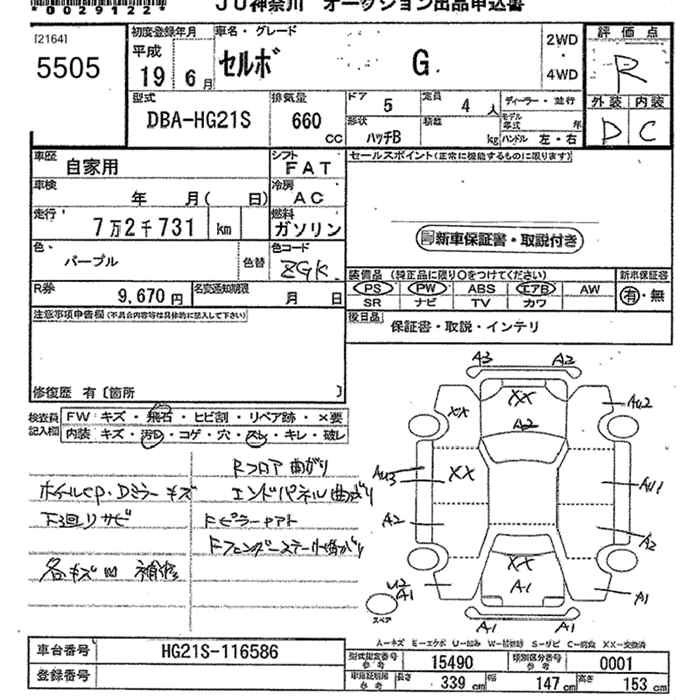 *0029122*
JU神奈川 オークション出品申込書
[2164]
5505
初度登録年月
平成
19 6月
車名・グレード
セルボ G
2WD
・
4WD
評価点
R
外装 内装
D C
型式
DBA-HG21S
排気量
660
cc
ドア 5
定員 4 人
ディーラー・並行
形状 ハッチB
積載 kg
モデル年式 年
ハンドル 左・右
車歴
自家用
シフト
FAT
セールスポイント(正常に機能するものに限ります)
車検
年 月( 日)
冷房
AC
走行
7万2千731 km
燃料
ガソリン
新車保証書・取説付き
色
パープル
色替
色コード
ZGK
装備品 (純正品に限り○をつけてください)
新車保証書
PS PW ABS エアB AW
SR ナビ TV カワ
有・無
R券
9,670円
名変通知期限
月 日
後日品
保証書・取説・インテリ
注意事項申告欄(不具合内容等は具体的に記入して下さい)
修復歴 有〔箇所 〕
検査員
記入欄
FW キズ・飛石・ヒビ割・リペア跡・×要
内装 キズ・汚れ・コゲ・穴・スレ・キレ・破レ
Rフロア曲がり
ホイールCP・Dミラーキズ
エンドパネル曲がり
下廻リサビ
Fピラーヤアト
Fフェンダーステー曲がり
各キズ凹 補修
A3 A2
XX XX AU2
A2
AU3 XX AU1
A2 A2
XX
U2
A1 A1 A1
スペア
A1 A1
A-キズ E-エクボ U-凹み W-補修跡 S-サビ C-腐食 XX-交換済
車台番号
HG21S-116586
型式指定番号
参考
15490
類別区分番号
参考
0001
登録番号
車両証明書
参考
長さ 339 cm
幅 147 cm
高さ 153 cm